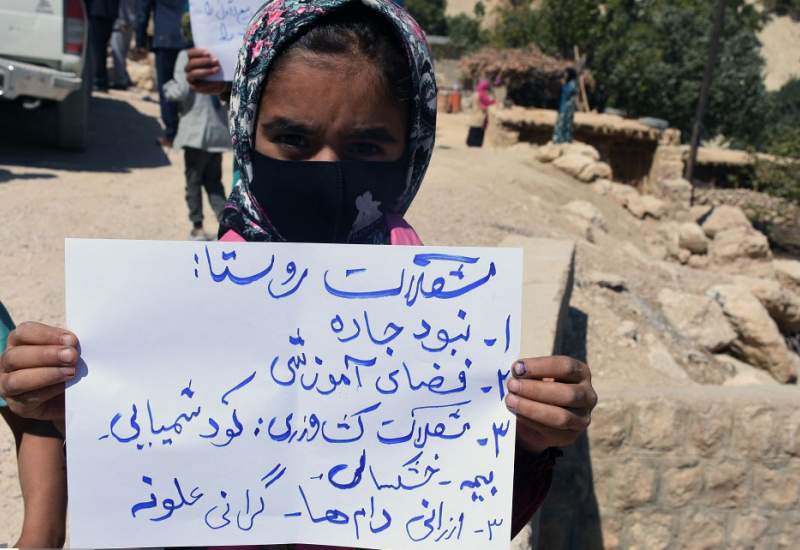 مشکلات روستا:
۱- نبود جاده
۲- فضای آموزشی
۳- مشکلات کشاورزی: کود شیمیایی-
بیمه - خشکسالی-
۳- ارزانی دام‌ها - گرانی علوفه